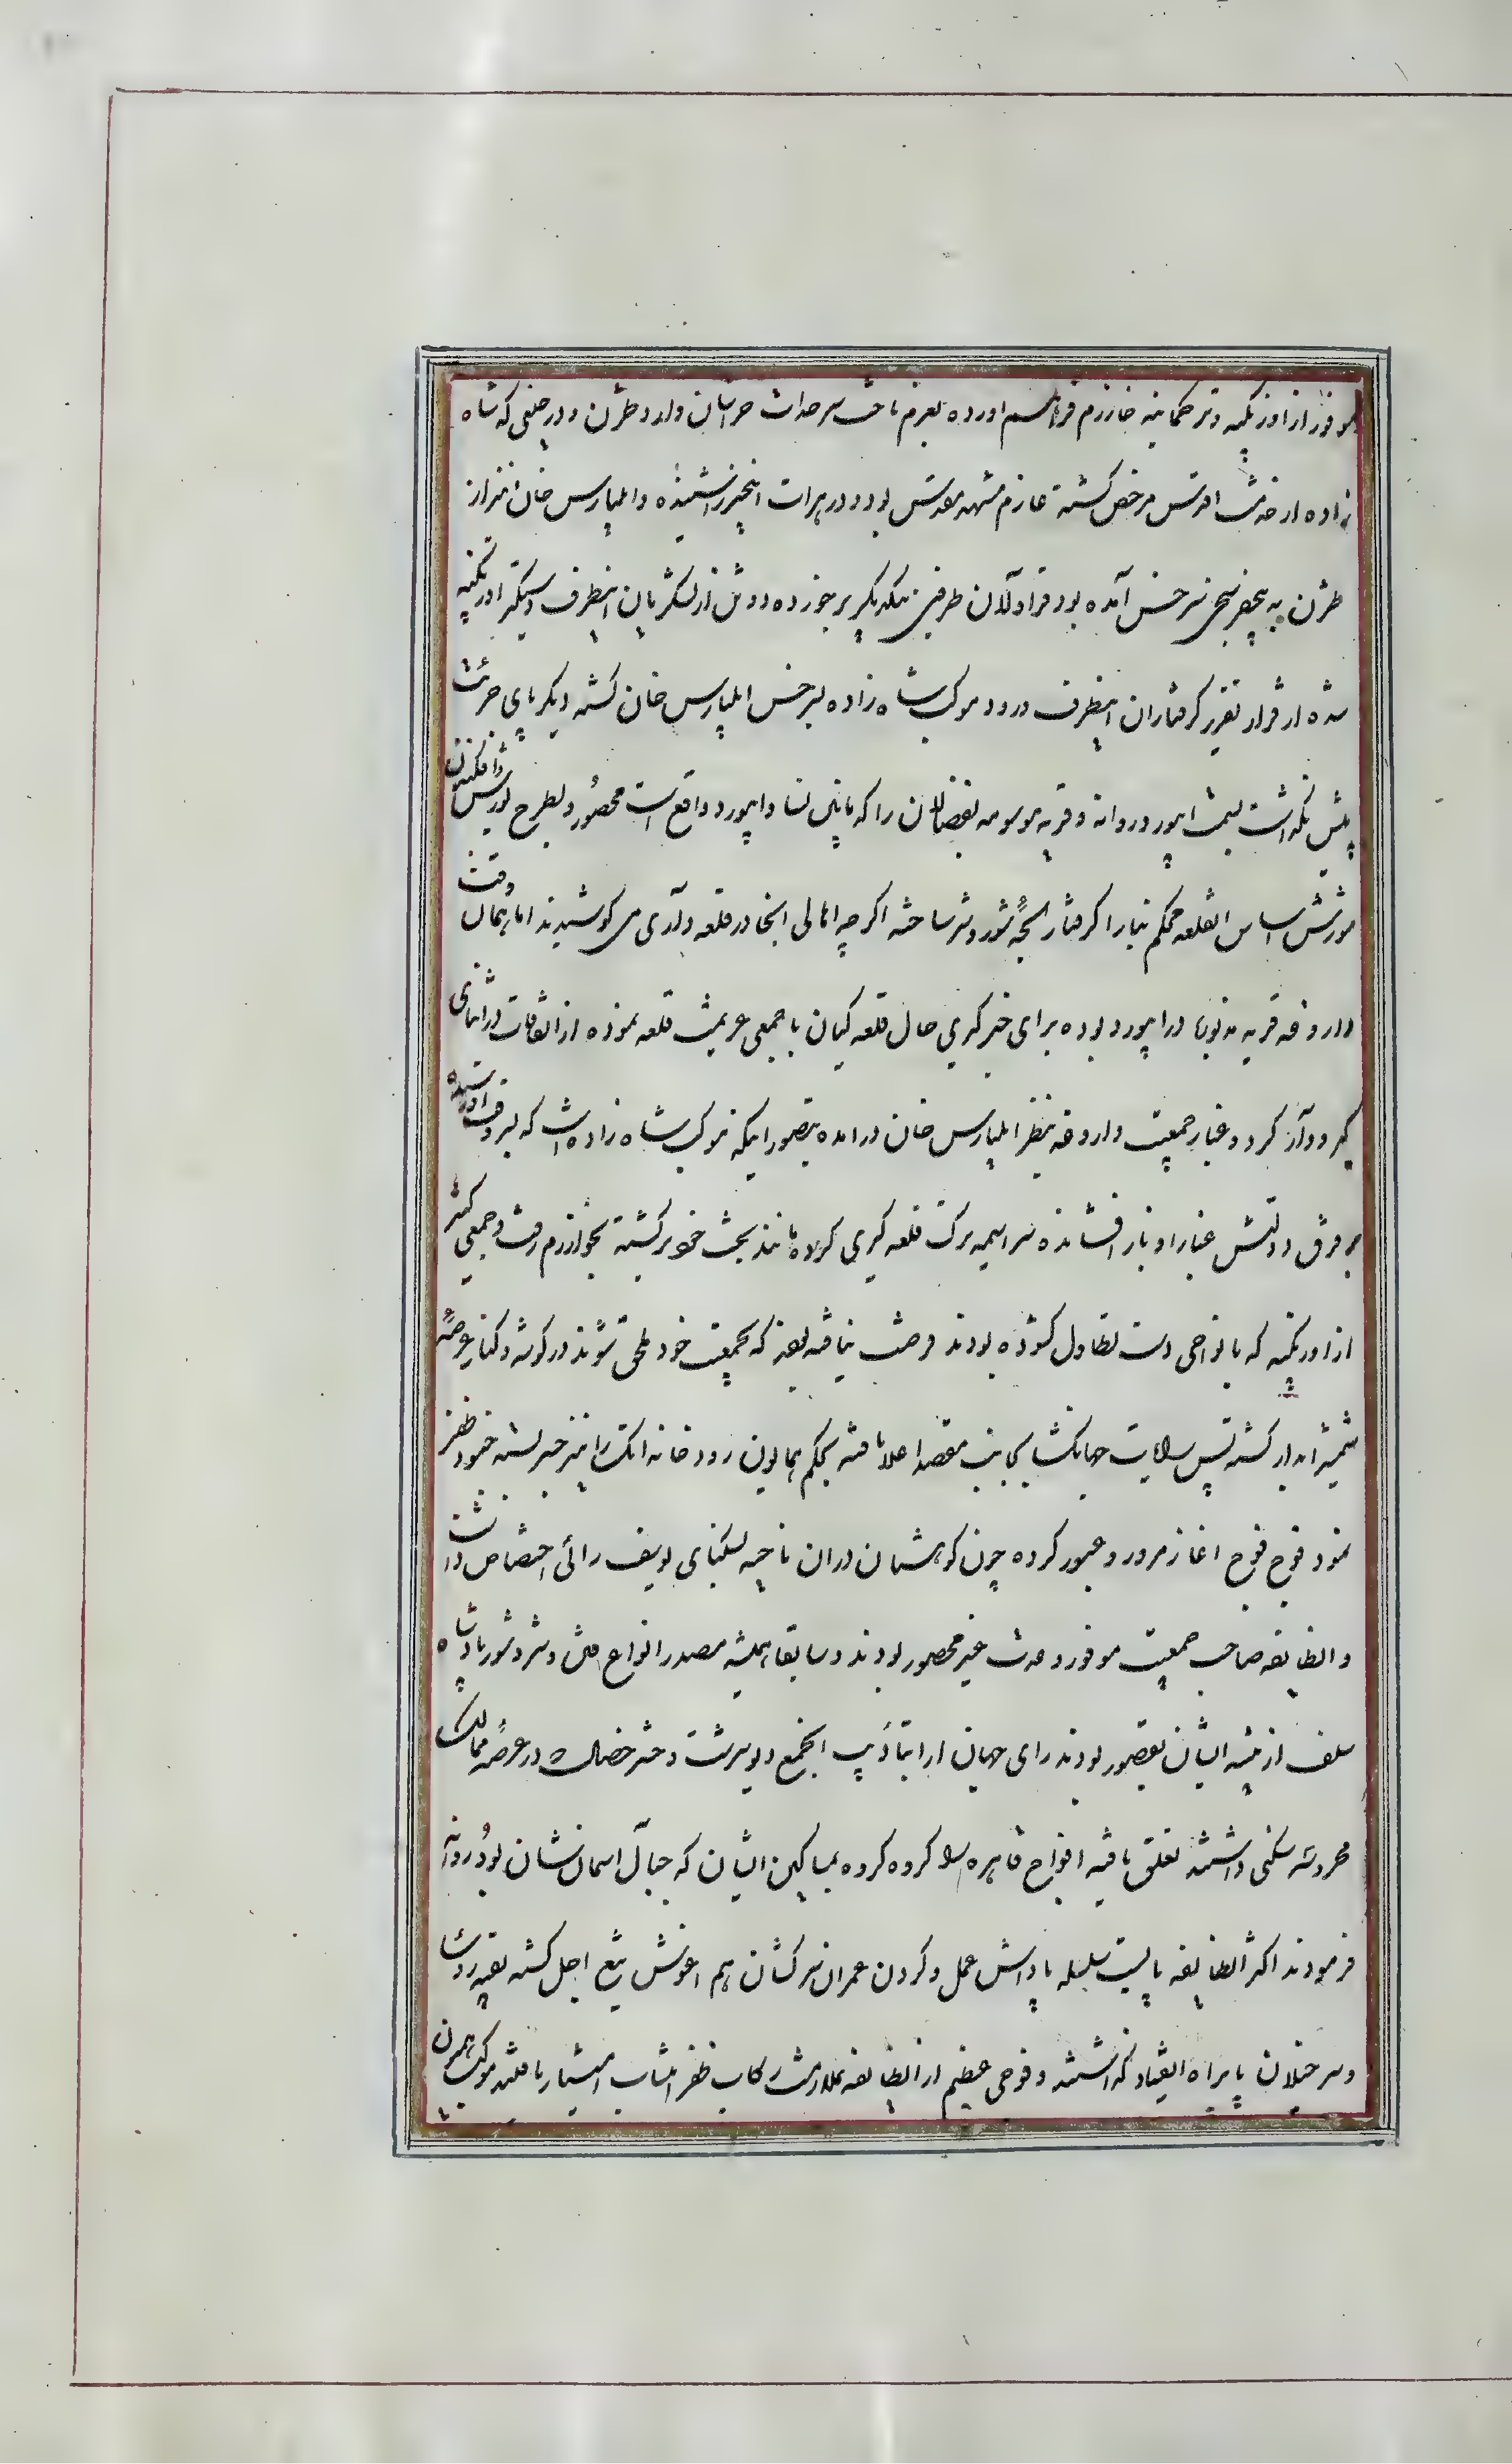 موفور از اوزبکیه و ترکمانیه خوارزم فراهم اورده بعزم تاخت سرحدات خراسان وارد طژن و در حینی که شاه
زاده از خدمت اقدس مرخص کشته عازم مشهد مقدس بود و در هرات اینخبر را شنیده و ایلبارس خان نیز از
طژن به پنجفرسخی سرخس آمده بود قراولان طرفین بیکدیکر برخورده دو تن از لشکریان اینطرف دستکیر اوزبکیه
شده از قرار تقریر کرفتاران اینطرف ورود موکب شاه زاده بسرخس ایلبارس خان کشته دیکر پای جرئت
پیش نکذاشت بسمت ابیورد روانه و قریه موسومه را که مابین نسا و ابیورد واقع است محصور و بطرح یورش و افکندن
شورش اساس انقلعه محکم بنا را کرفتار لجه شور و شر ساخته اکرچه اهالی انجا در قلعه داری می کوشیدند اما بهمان وقت
داروغه قریه مذبوره در ابیورد بوده برای خبرکیری حال قلعه کیان با جمعی عزیمت قلعه نموده از اتفاقات در اثنای
کیر و دار کرد و غبار جمعیت داروغه بنظر ایلبارس خان درامده بتصور اینکه موکب شاه زاده است که بسر وقت او رسیده
بر فرق دولتش غبار ادبار افشانده سراسیمه ترک قلعه کیری کرده مانند بخت خود برکشته بخوارزم رفت و جمعی کثیر
از اوزبکیه که بانواحی دست تطاول کشوده بودند فرصت نیافته بودند که بجمعیت خود ملحق شوند در کوشه و کنار عرضه
شمشیر ابدار کشتند پس رایات جهانکشا بجانب مقصد اعلا یافته بحکم همایون رودخانه اتک را نیز جسر بسته جنود ظفر
نمود فوج فوج اغاز مرور و عبور کرده چون کوهستان دران ناحیه بسکنای یوسف زائی اختصاص داشت
و انطایفه صاحب جمعیت موفور و عدت غیر محصور بودند و سابقا همیشه مصدر انواع فتن و شر و شور پادشاه
سلف از تنبیه ایشان بقصور بودند رای جهان ارا بتادیب انجمع دیو سرشت وحشر خصال که در عرصه ممالک
محروسه سکنی داشتند تعلق یافته افواج قاهره را کروه کروه بمساکین ایشان که جبال اسمان نشان بود روانه
فرمودند اکثر انطایفه پابست سلسله پاداش عمل و کردن عمران سرکشان هم اغوش تیغ اجل کشته بقیه رؤسا
و سرخیلان پا براه انقیاد کذاشتند و فوجی عظیم از انطایفه بملازمت رکاب ظفر انتساب امتیاز یافتند موکب همایون